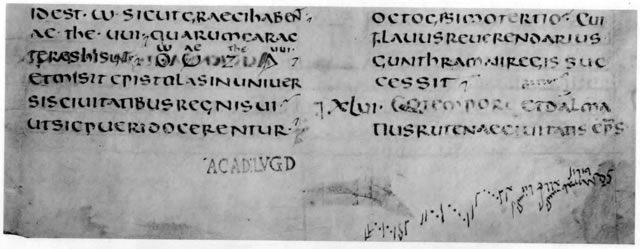 IDEST· W SICUT GRAECI HABEN
AE· THE· UUI· QUARUM CARAC
w ae the uui
TERES HI SUNT·
ET MISIT EPISTOLAS IN UNIUER
SIS CIUITATIBUS REGNI SUI·
UT SIC PUERI DOCERENTUR·
ACAD. LVGD
OCTOGESIMO TERTIO· CUI
FLAUIUS REUERENDARIUS
GUNTHRAMNI REGIS SUC
CESSIT
XLVI· TEMPORE ET DALMA
TIUS RUTENAE CIUITATIS EPS